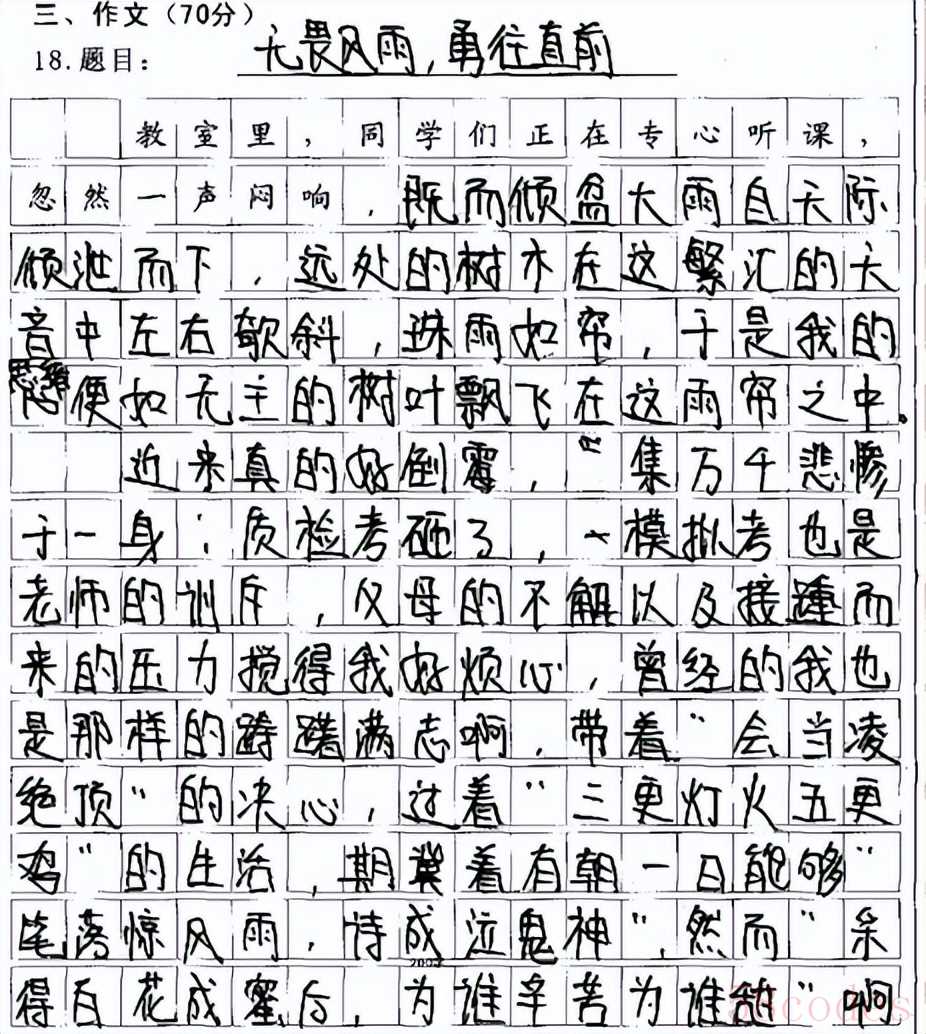 三、作文（70分）
18.题目： 无畏风雨，勇往直前
教室里，同学们正在专心听课，
忽然一声闷响，既而倾盆大雨自天际
倾泄而下，远处的树木在这繁汇的大
音中左右欹斜，珠雨如帘，于是我的
思绪便如无主的树叶飘飞在这雨帘之中。
近来真的好倒霉，"集万千悲惨
于一身：质检考砸了，一模拟考也是
老师的训斥，父母的不解以及接踵而
来的压力搅得我好烦心，曾经的我也
是那样的踌躇满志啊，带着"会当凌
绝顶"的决心，过着"三更灯火五更
鸡"的生活，期冀着有朝一日能够"
笔落惊风雨，诗成泣鬼神"，然而"采
得百花成蜜后，为谁辛苦为谁甜"啊